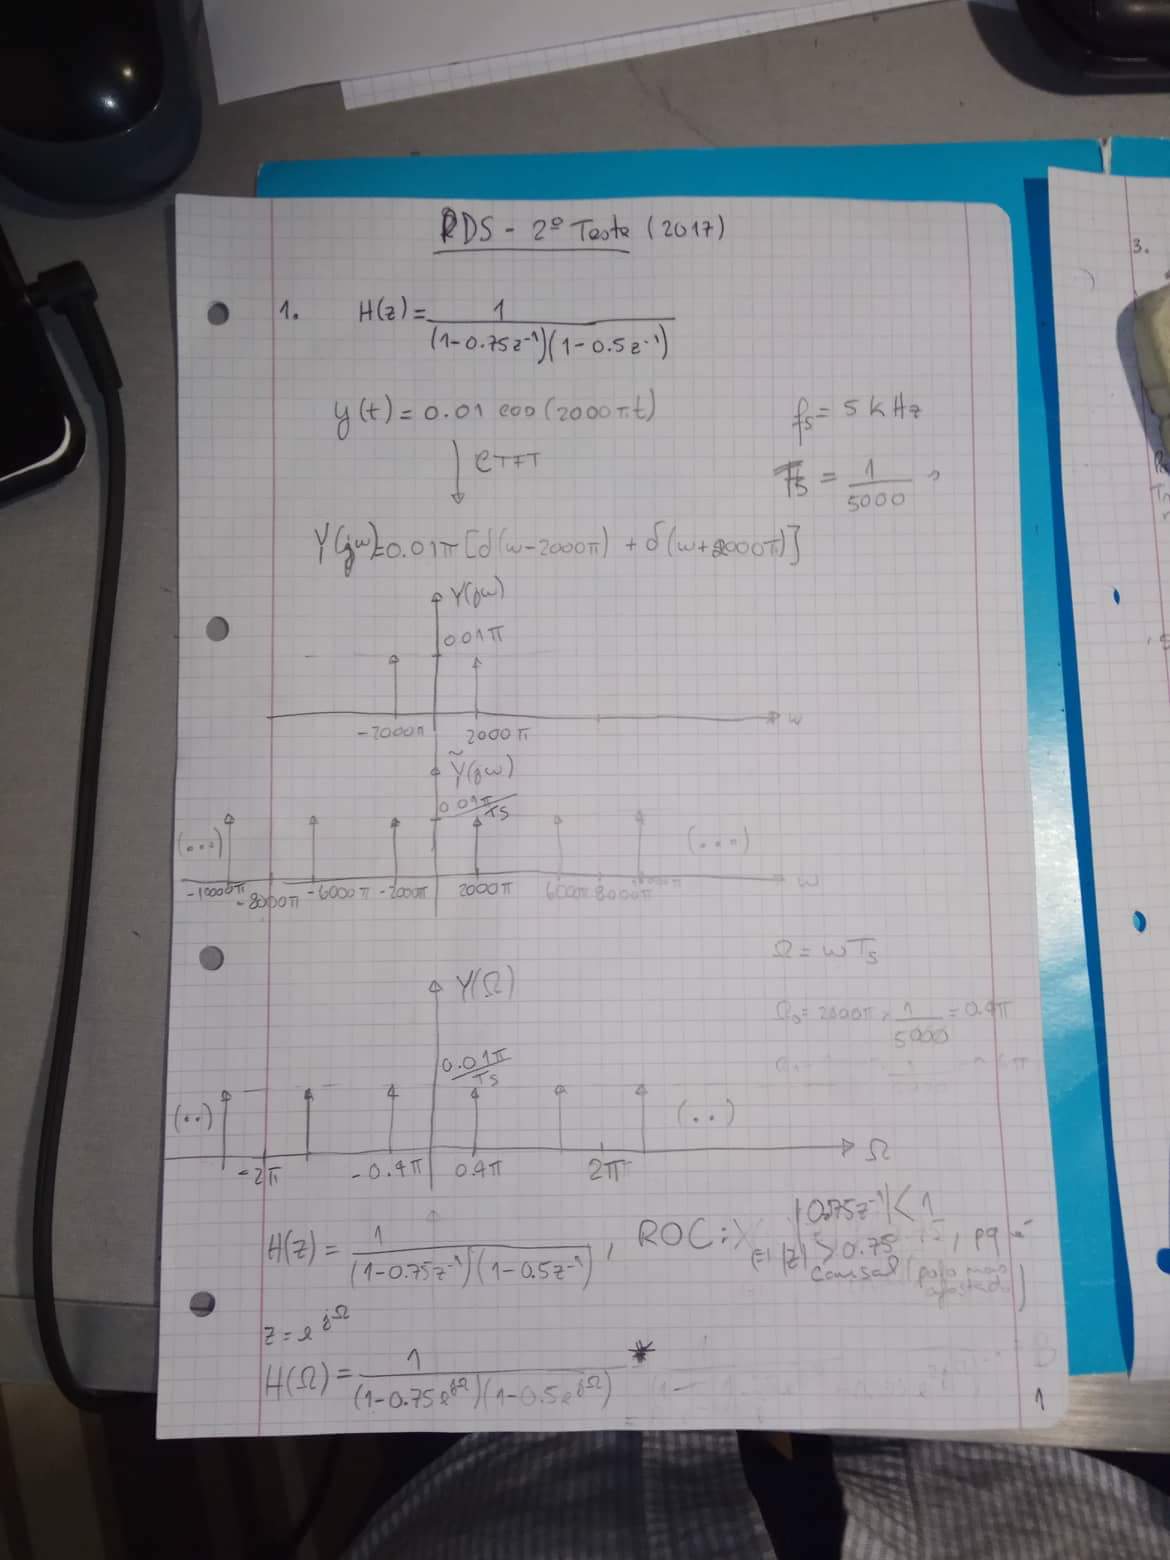 PDS - 2º Teste (2017)
1. H(z) = 1 / (1-0.75z⁻¹)(1-0.5z⁻¹)
y(t) = 0.01 cos(2000πt)
fs = 5 kHz
CTFT
Ts = 1/5000
Y(jω)=0.01π[δ(ω-2000π) + δ(ω+2000π)]
Y(jω)
0.01π
-2000π 2000π ω
Ỹ(jω)
0.01π/Ts
(...) (...)
-10000π -8000π -6000π -2000π 2000π 600π 8000π ω
Ω = ωTs
Y(Ω)
Ω₀ = 2000π × 1/5000 = 0.4π
0.01π/Ts
(..) (..)
-2π -0.4π 0.4π 2π Ω
|0.75z⁻¹| < 1
H(z) = 1 / (1-0.75z⁻¹)(1-0.5z⁻¹) , ROC: |z| > 0.75 , pq é
causal (polo mais
afastado)
z = e^jΩ
H(Ω) = 1 / (1-0.75e^jΩ)(1-0.5e^jΩ) *
1
3.